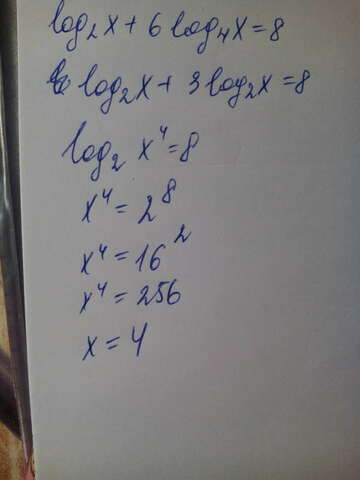 log₂x + 6 log₄x = 8
log₂x + 3 log₂x = 8
log₂ x⁴ = 8
x⁴ = 2⁸
x⁴ = 16²
x⁴ = 256
x = 4